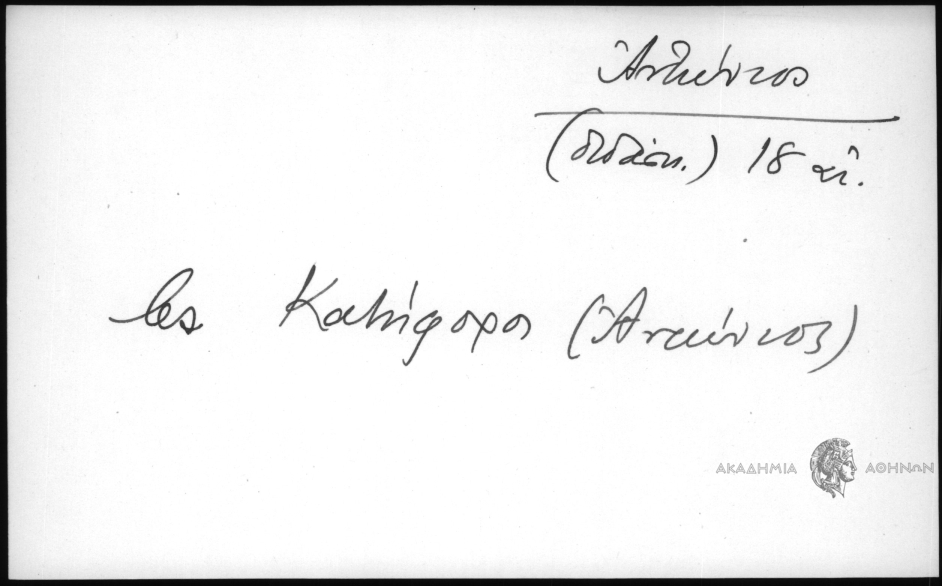 Ἀντώνιος
(διδάσκ.) 18 αἰ.
βλ. Κατήφορος (Ἀντώνιος)
ΑΚΑΔΗΜΙΑ ΑΘΗΝΩΝ